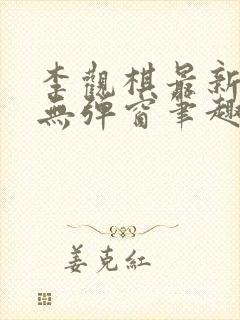 李觀棋最新
無彈窗筆趣
姜克紅